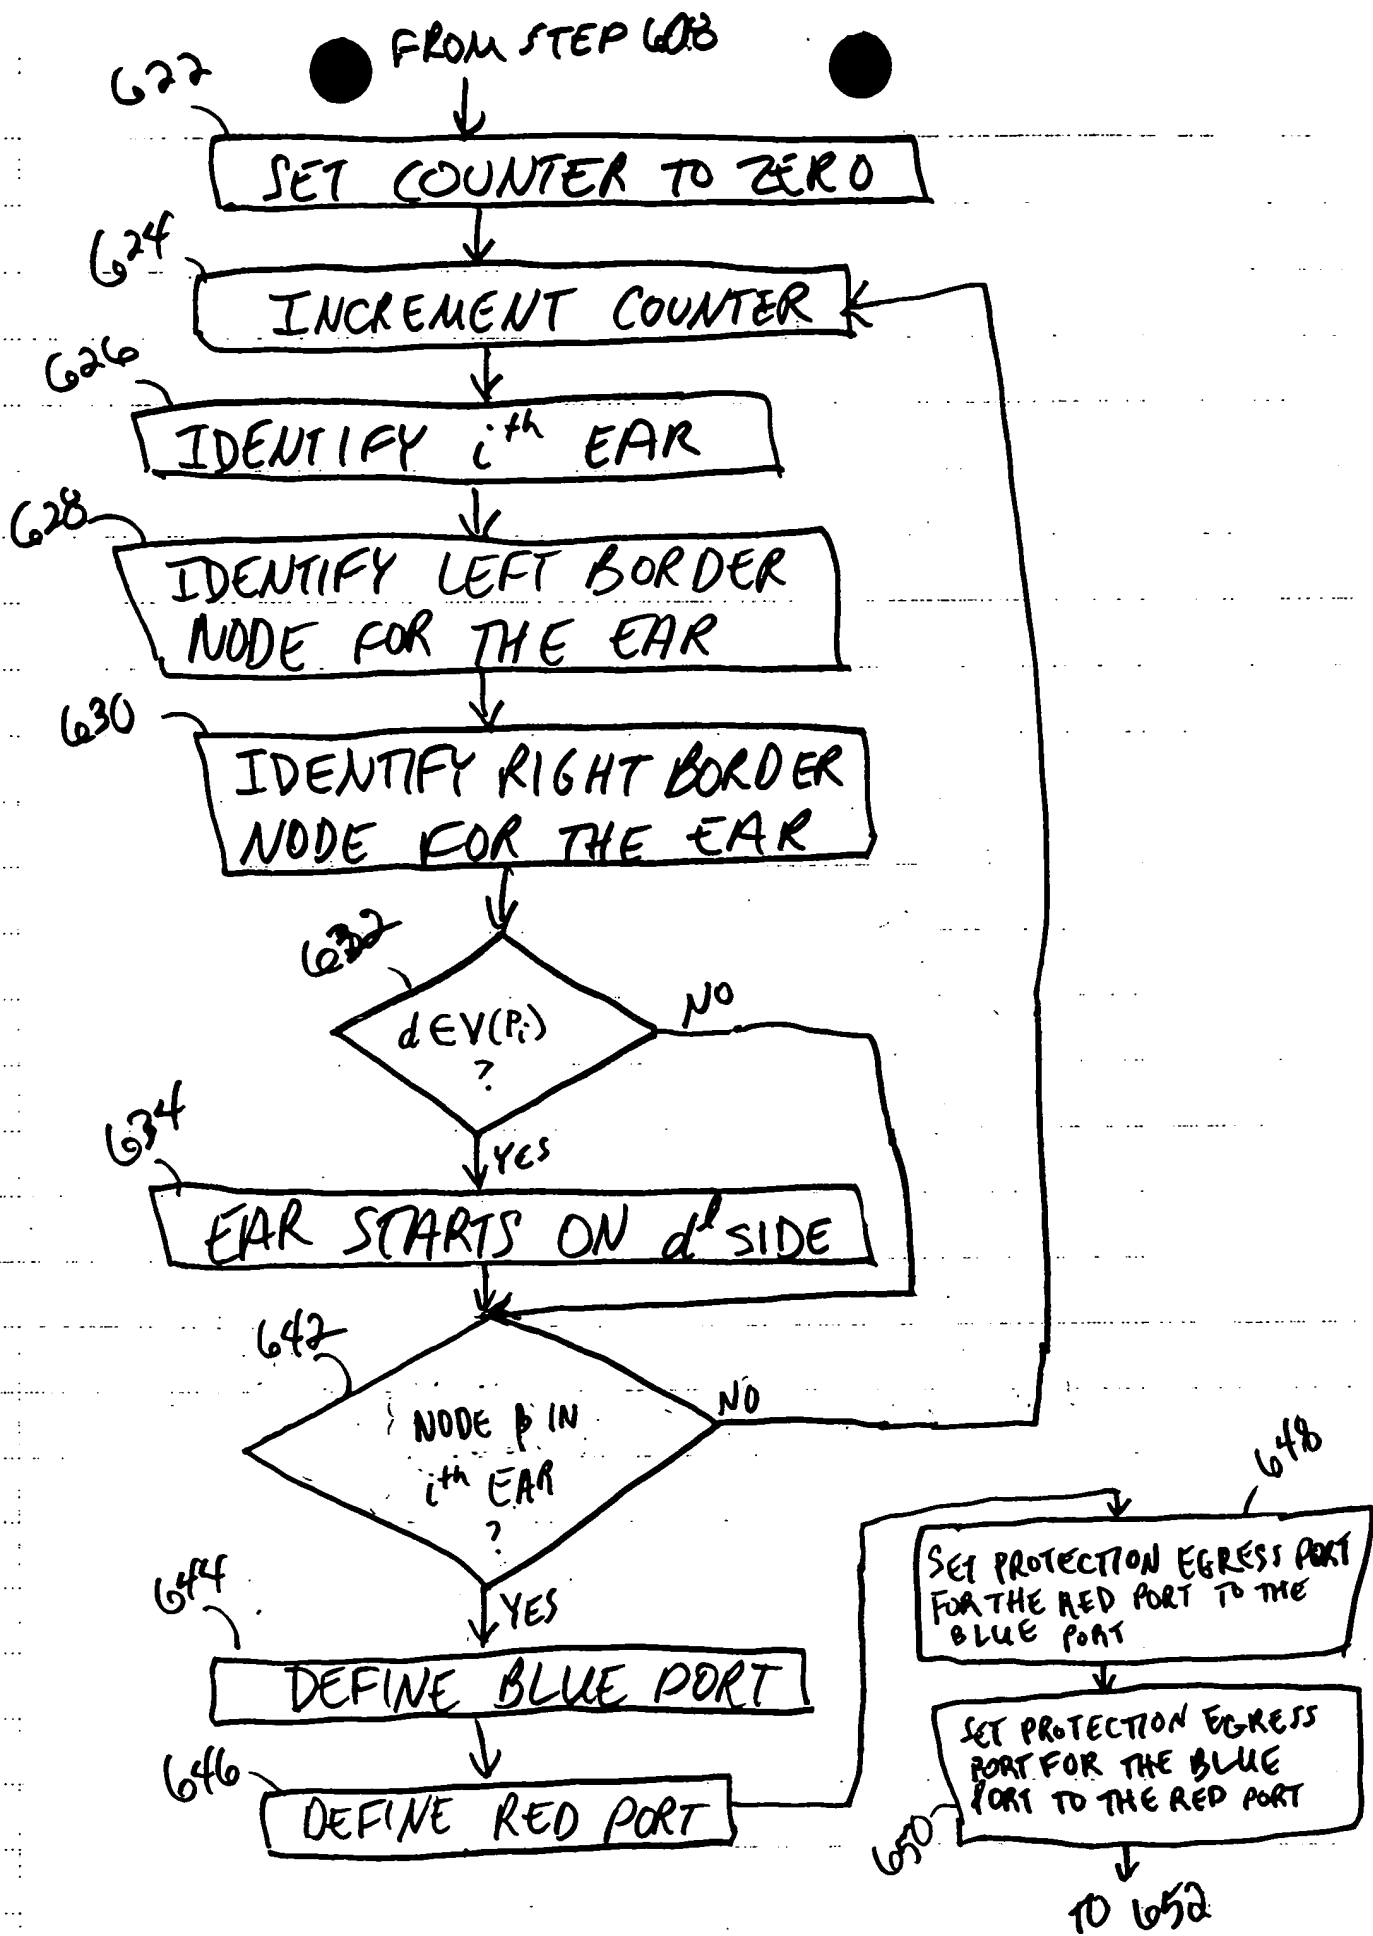 FROM STEP 608
622
SET COUNTER TO ZERO
624
INCREMENT COUNTER
626
IDENTIFY ith EAR
628
IDENTIFY LEFT BORDER
NODE FOR THE EAR
630
IDENTIFY RIGHT BORDER
NODE FOR THE EAR
632
d∈V(Pi)
?
NO
YES
634
EAR STARTS ON dl SIDE
642
NODE p IN
ith EAR
?
NO
YES
644
DEFINE BLUE PORT
646
DEFINE RED PORT
648
SET PROTECTION EGRESS PORT
FOR THE RED PORT TO THE
BLUE PORT
SET PROTECTION EGRESS
PORT FOR THE BLUE
PORT TO THE RED PORT
650
TO 652